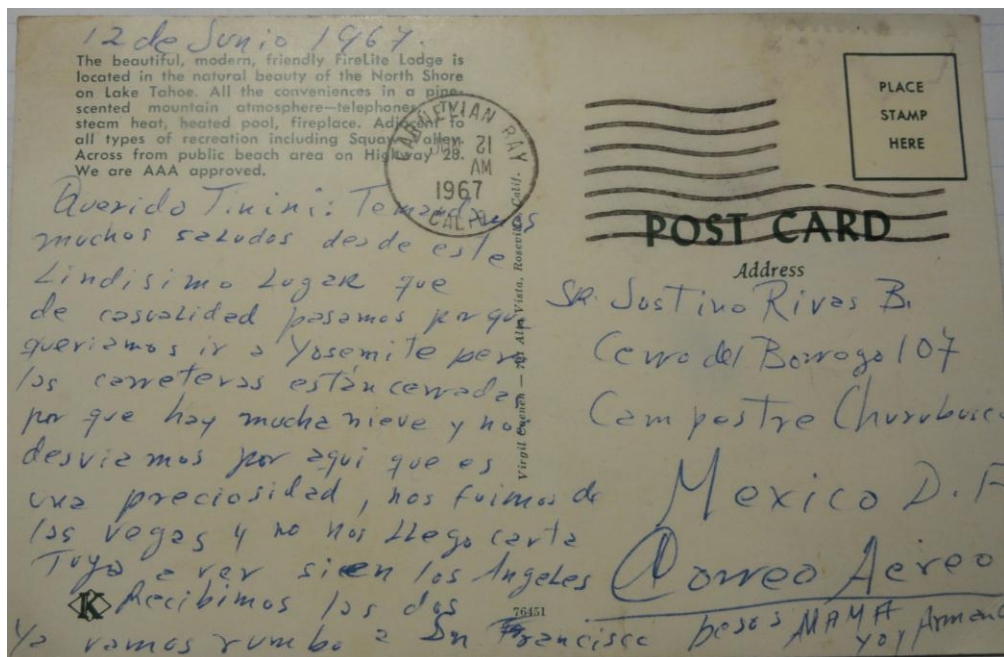 12 de Junio 1967.
The beautiful, modern, friendly FireLite Lodge is
located in the natural beauty of the North Shore
on Lake Tahoe. All the conveniences in a pine-
scented mountain atmosphere—telephones, TV,
steam heat, heated pool, fireplace. Adjacent to
all types of recreation including Squaw Valley.
Across from public beach area on Highway 28.
We are AAA approved.
Querido Tinini: Te mandamos
muchos saludos desde este
Lindisimo Lugar que
de casualidad pasamos por que
queriamos ir a Yosemite pero
las carreteras están cerradas
por que hay mucha nieve y nos
desviamos por aqui que es
una preciosidad, nos fuimos de
las vegas y no nos llego carta
Tuya a ver si en los Angeles
Recibimos las dos
Ya vamos rumbo a Sn Francisco besos MAMA
y oy Armando
K
76451
Virgil Cuenca — Alta Vista, Roseville, Calif.
CARNELIAN BAY
JUN 21
AM
1967
CALIF.
PLACE
STAMP
HERE
POST CARD
Address
SR. Justino Rivas B.
Cerro del Borrego 107
Campestre Churubusco
Mexico D.F
Correo Aereo